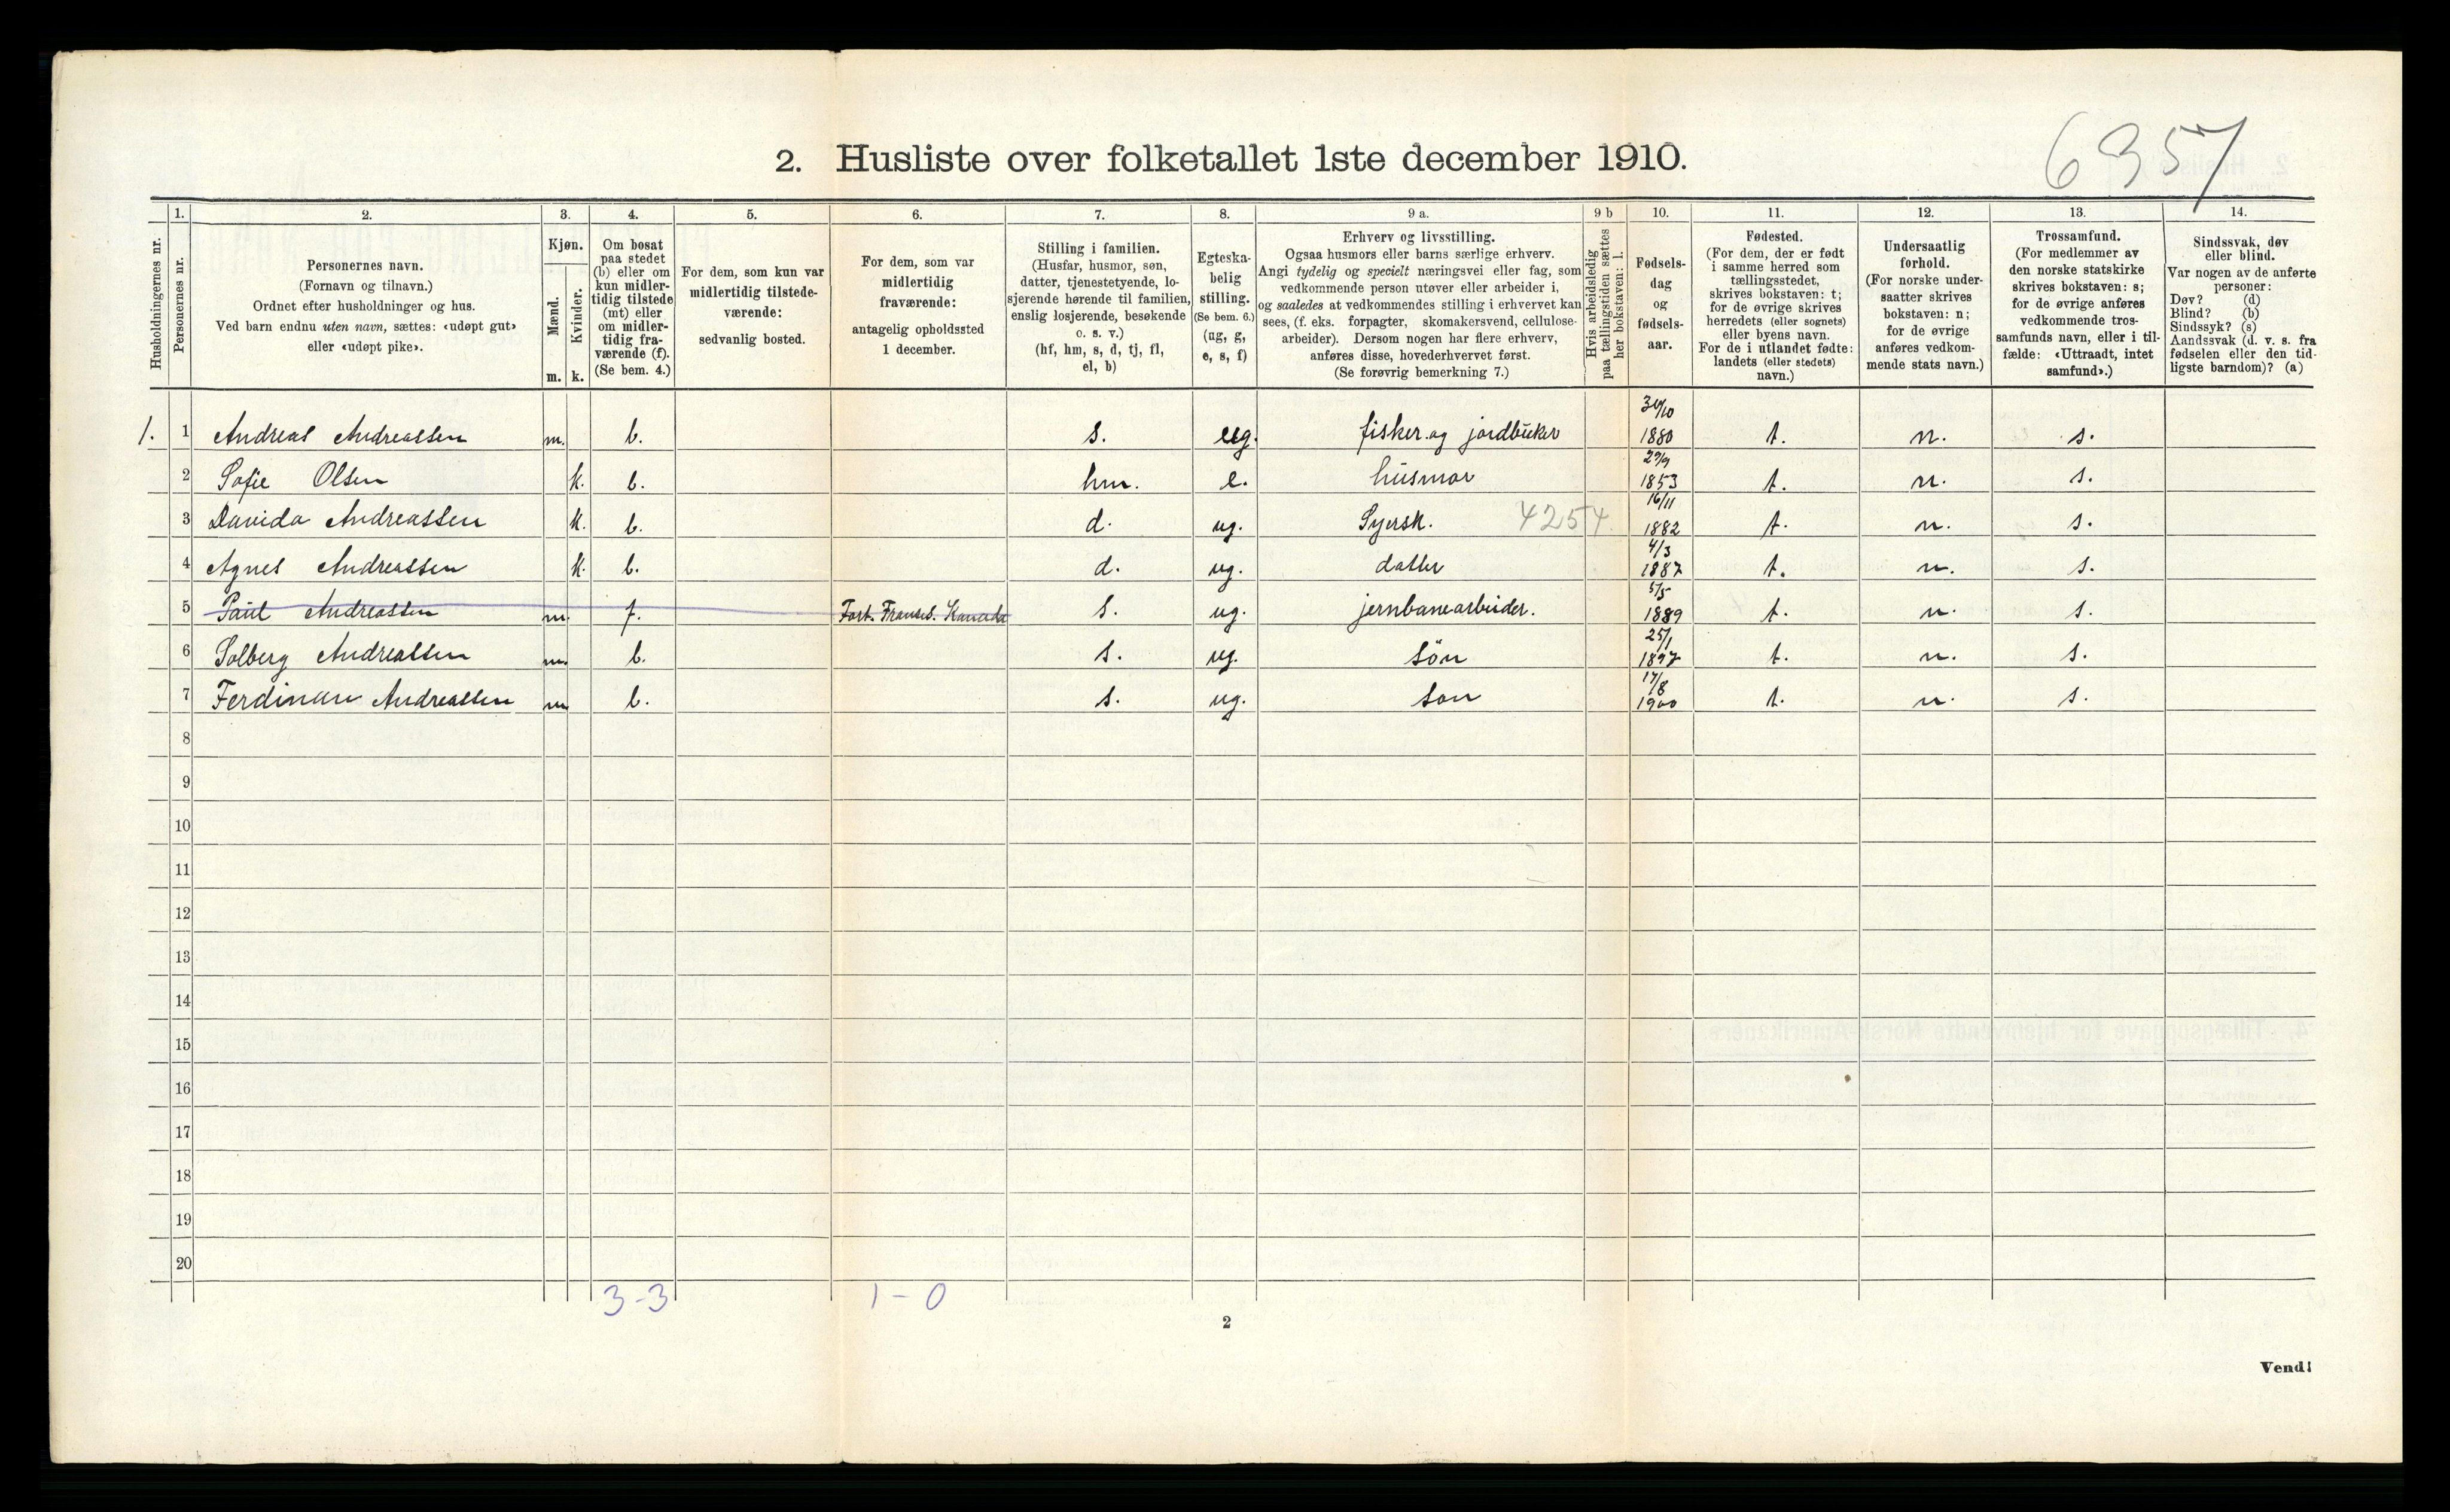 6957
2. Husliste over folketallet 1ste december 1910.
Husholdningernes nr.
1. Personernes nr.
2. Personernes navn.
(Fornavn og tilnavn.)
Ordnet efter husholdninger og hus.
Ved barn endnu uten navn, sættes: «udøpt gut»
eller «udøpt pike».
3. Kjøn.
Mænd. m.
Kvinder. k.
4. Om bosat
paa stedet
(b) eller om
kun midler-
tidig tilstede
(mt) eller
om midler-
tidig fra-
værende (f).
(Se bem. 4.)
5. For dem, som kun var
midlertidig tilstede-
værende:
sedvanlig bosted.
6. For dem, som var
midlertidig
fraværende:
antagelig opholdssted
1 december.
7. Stilling i familien.
(Husfar, husmor, søn,
datter, tjenestetyende, lo-
sjerende hørende til familien,
enslig losjerende, besøkende
o. s. v.)
(hf, hm, s, d, tj, fl,
el, b)
8. Egteska-
belig
stilling.
(Se bem. 6.)
(ug, g,
e, s, f)
9 a. Erhverv og livsstilling.
Ogsaa husmors eller barns særlige erhverv.
Angi tydelig og specielt næringsvei eller fag, som
vedkommende person utøver eller arbeider i,
og saaledes at vedkommendes stilling i erhvervet kan
sees, (f. eks. forpagter, skomakersvend, cellulose-
arbeider). Dersom nogen har flere erhverv,
anføres disse, hovederhvervet først.
(Se forøvrig bemerkning 7.)
9 b Hvis arbeidsledig
paa tællingstiden sættes
her bokstaven: l.
10. Fødsels-
dag
og
fødsels-
aar.
11. Fødested.
(For dem, der er født
i samme herred som
tællingsstedet,
skrives bokstaven: t;
for de øvrige skrives
herredets (eller sognets)
eller byens navn.
For de i utlandet fødte:
landets (eller stedets)
navn.)
12. Undersaatlig
forhold.
(For norske under-
saatter skrives
bokstaven: n;
for de øvrige
anføres vedkom-
mende stats navn.)
13. Trossamfund.
(For medlemmer av
den norske statskirke
skrives bokstaven: s;
for de øvrige anføres
vedkommende tros-
samfunds navn, eller i til-
fælde: «Uttraadt, intet
samfund».)
14. Sindssvak, døv
eller blind.
Var nogen av de anførte
personer:
Døv? (d)
Blind? (b)
Sindssyk? (s)
Aandssvak (d. v. s. fra
fødselen eller den tid-
ligste barndom)? (a)
1. 1 Andreas Andreassen m. b. s. ug. fisker og jordbruker 30/10 1880 t. n. s.
2 Sofie Olsen k. b. hm. e. husmor 29/9 1853 t. n. s.
3 Davida Andreassen k. b. d. ug. Syersk. 4254 16/11 1882 t. n. s.
4 Agnes Andreassen k. b. d. ug. datter 4/3 1887 t. n. s.
5 Paul Andreassen m. f. Fort. Franses. Kanada s. ug. jernbanearbeider. 5/5 1889 t. n. s.
6 Solberg Andreassen m. b. s. ug. søn 25/1 1897 t. n. s.
7 Ferdinan Andreassen m b. s. ug. son 17/8 1900 t. n. s.
8
9
10
11
12
13
14
15
16
17
18
19
20
3-3 1-0
2
Vend!